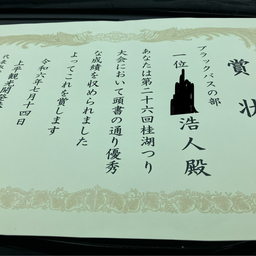 賞状
ブラックバスの部
一位
浩人殿
あなたは第二十六回桂湖つり
大会において頭書の通り優秀
な成績を収められました
よってこれを賞します
令和六年七月十四日
上平観光開発